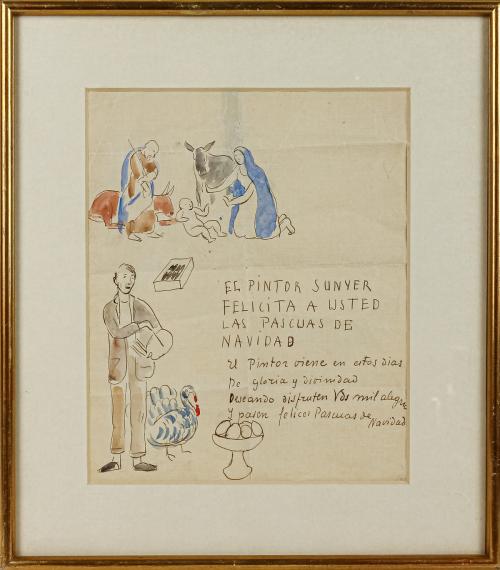 EL PINTOR SUNYER
FELICITA A USTED
LAS PASCUAS DE
NAVIDAD
El Pintor viene en estos dias
De gloria y divinidad
Deseando disfruten Vds mil alegrias
y pasen felices Pascuas de
Navidad